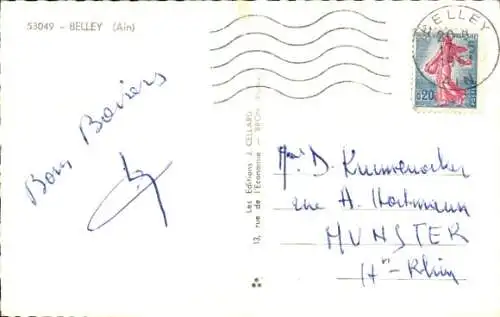 53049 - BELLEY (Ain)
BELLEY
0,20
Bons Baisers
Les Editions J. CELLARD
13, rue de l'Economie - BRON
D.
rue A. Hartmann
MUNSTER
Ht-Rhin